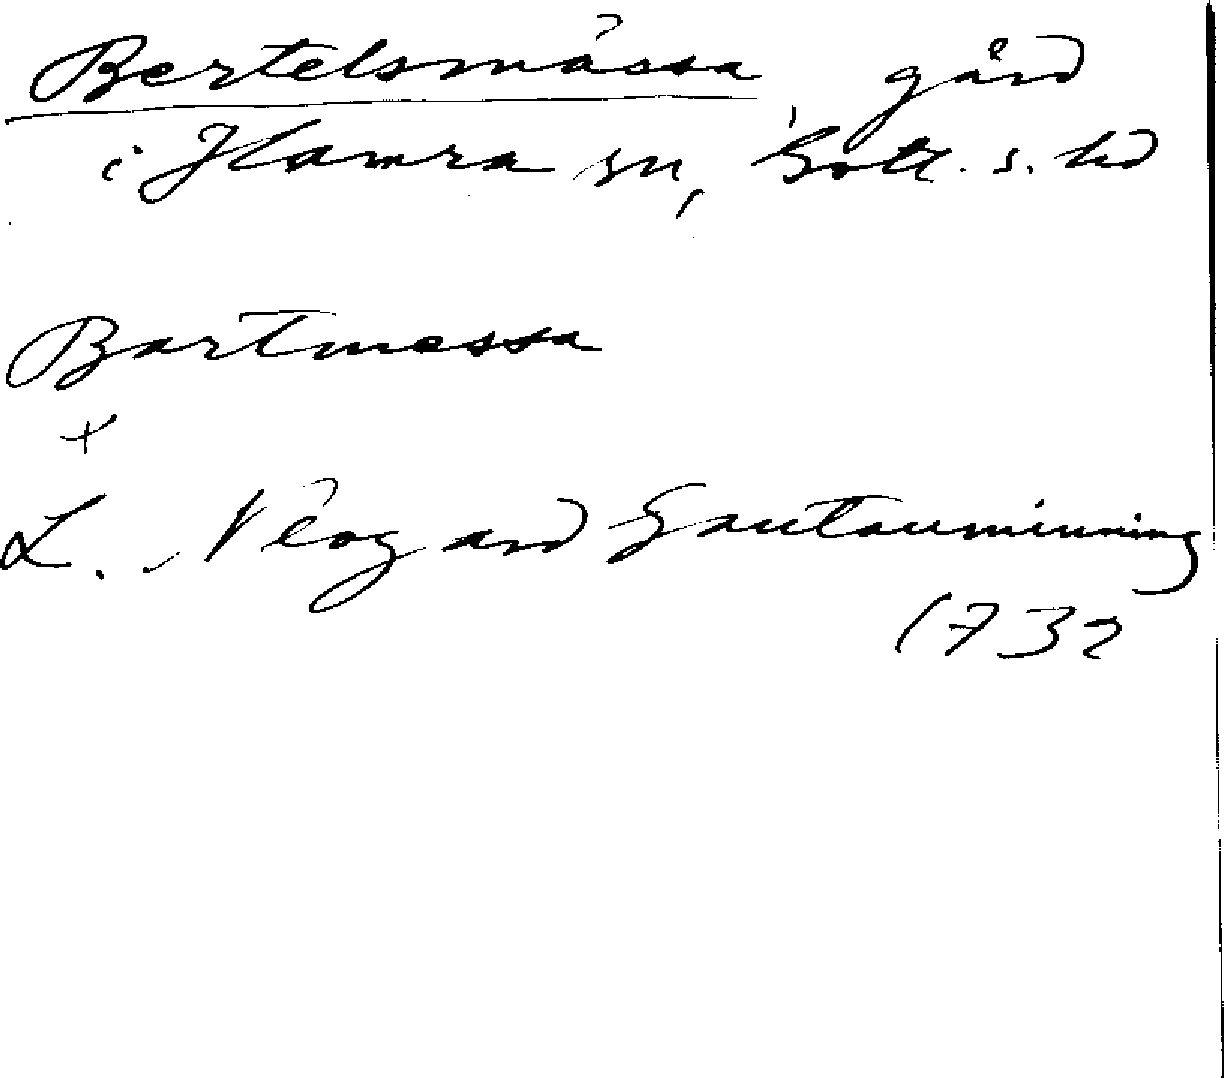 Bertelsmässa, gård
i Hamra sn, Gotl. s. hd
Bartmessa
+
L. Neogard Gautauminning
1732